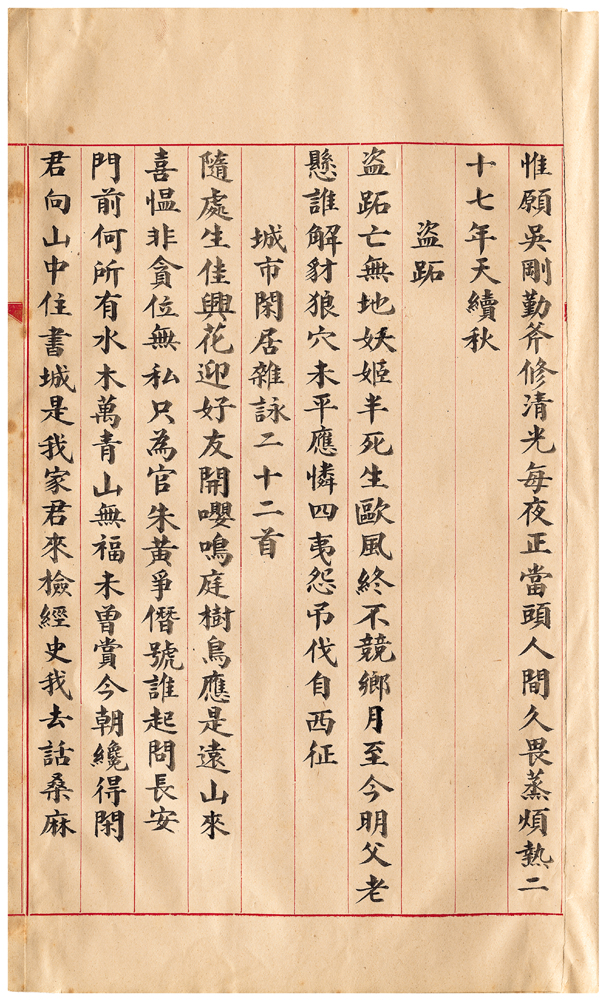 惟願吳剛勤斧修清光每夜正當頭人間久畏蒸煩熱二
十七年天續秋
盜跖
盜跖亡無地妖姬半死生歐風終不競鄉月至今明父老
懸誰解豺狼穴未平應憐四夷怨弔伐自西征
城市閑居雜詠二十二首
隨處生佳興花迎好友開嚶鳴庭樹鳥應是遠山來
喜慍非貪位無私只為官朱黃爭僭號誰起問長安
門前何所有水木萬青山無福未曾賞今朝纔得閑
君向山中住書城是我家君來檢經史我去話桑麻